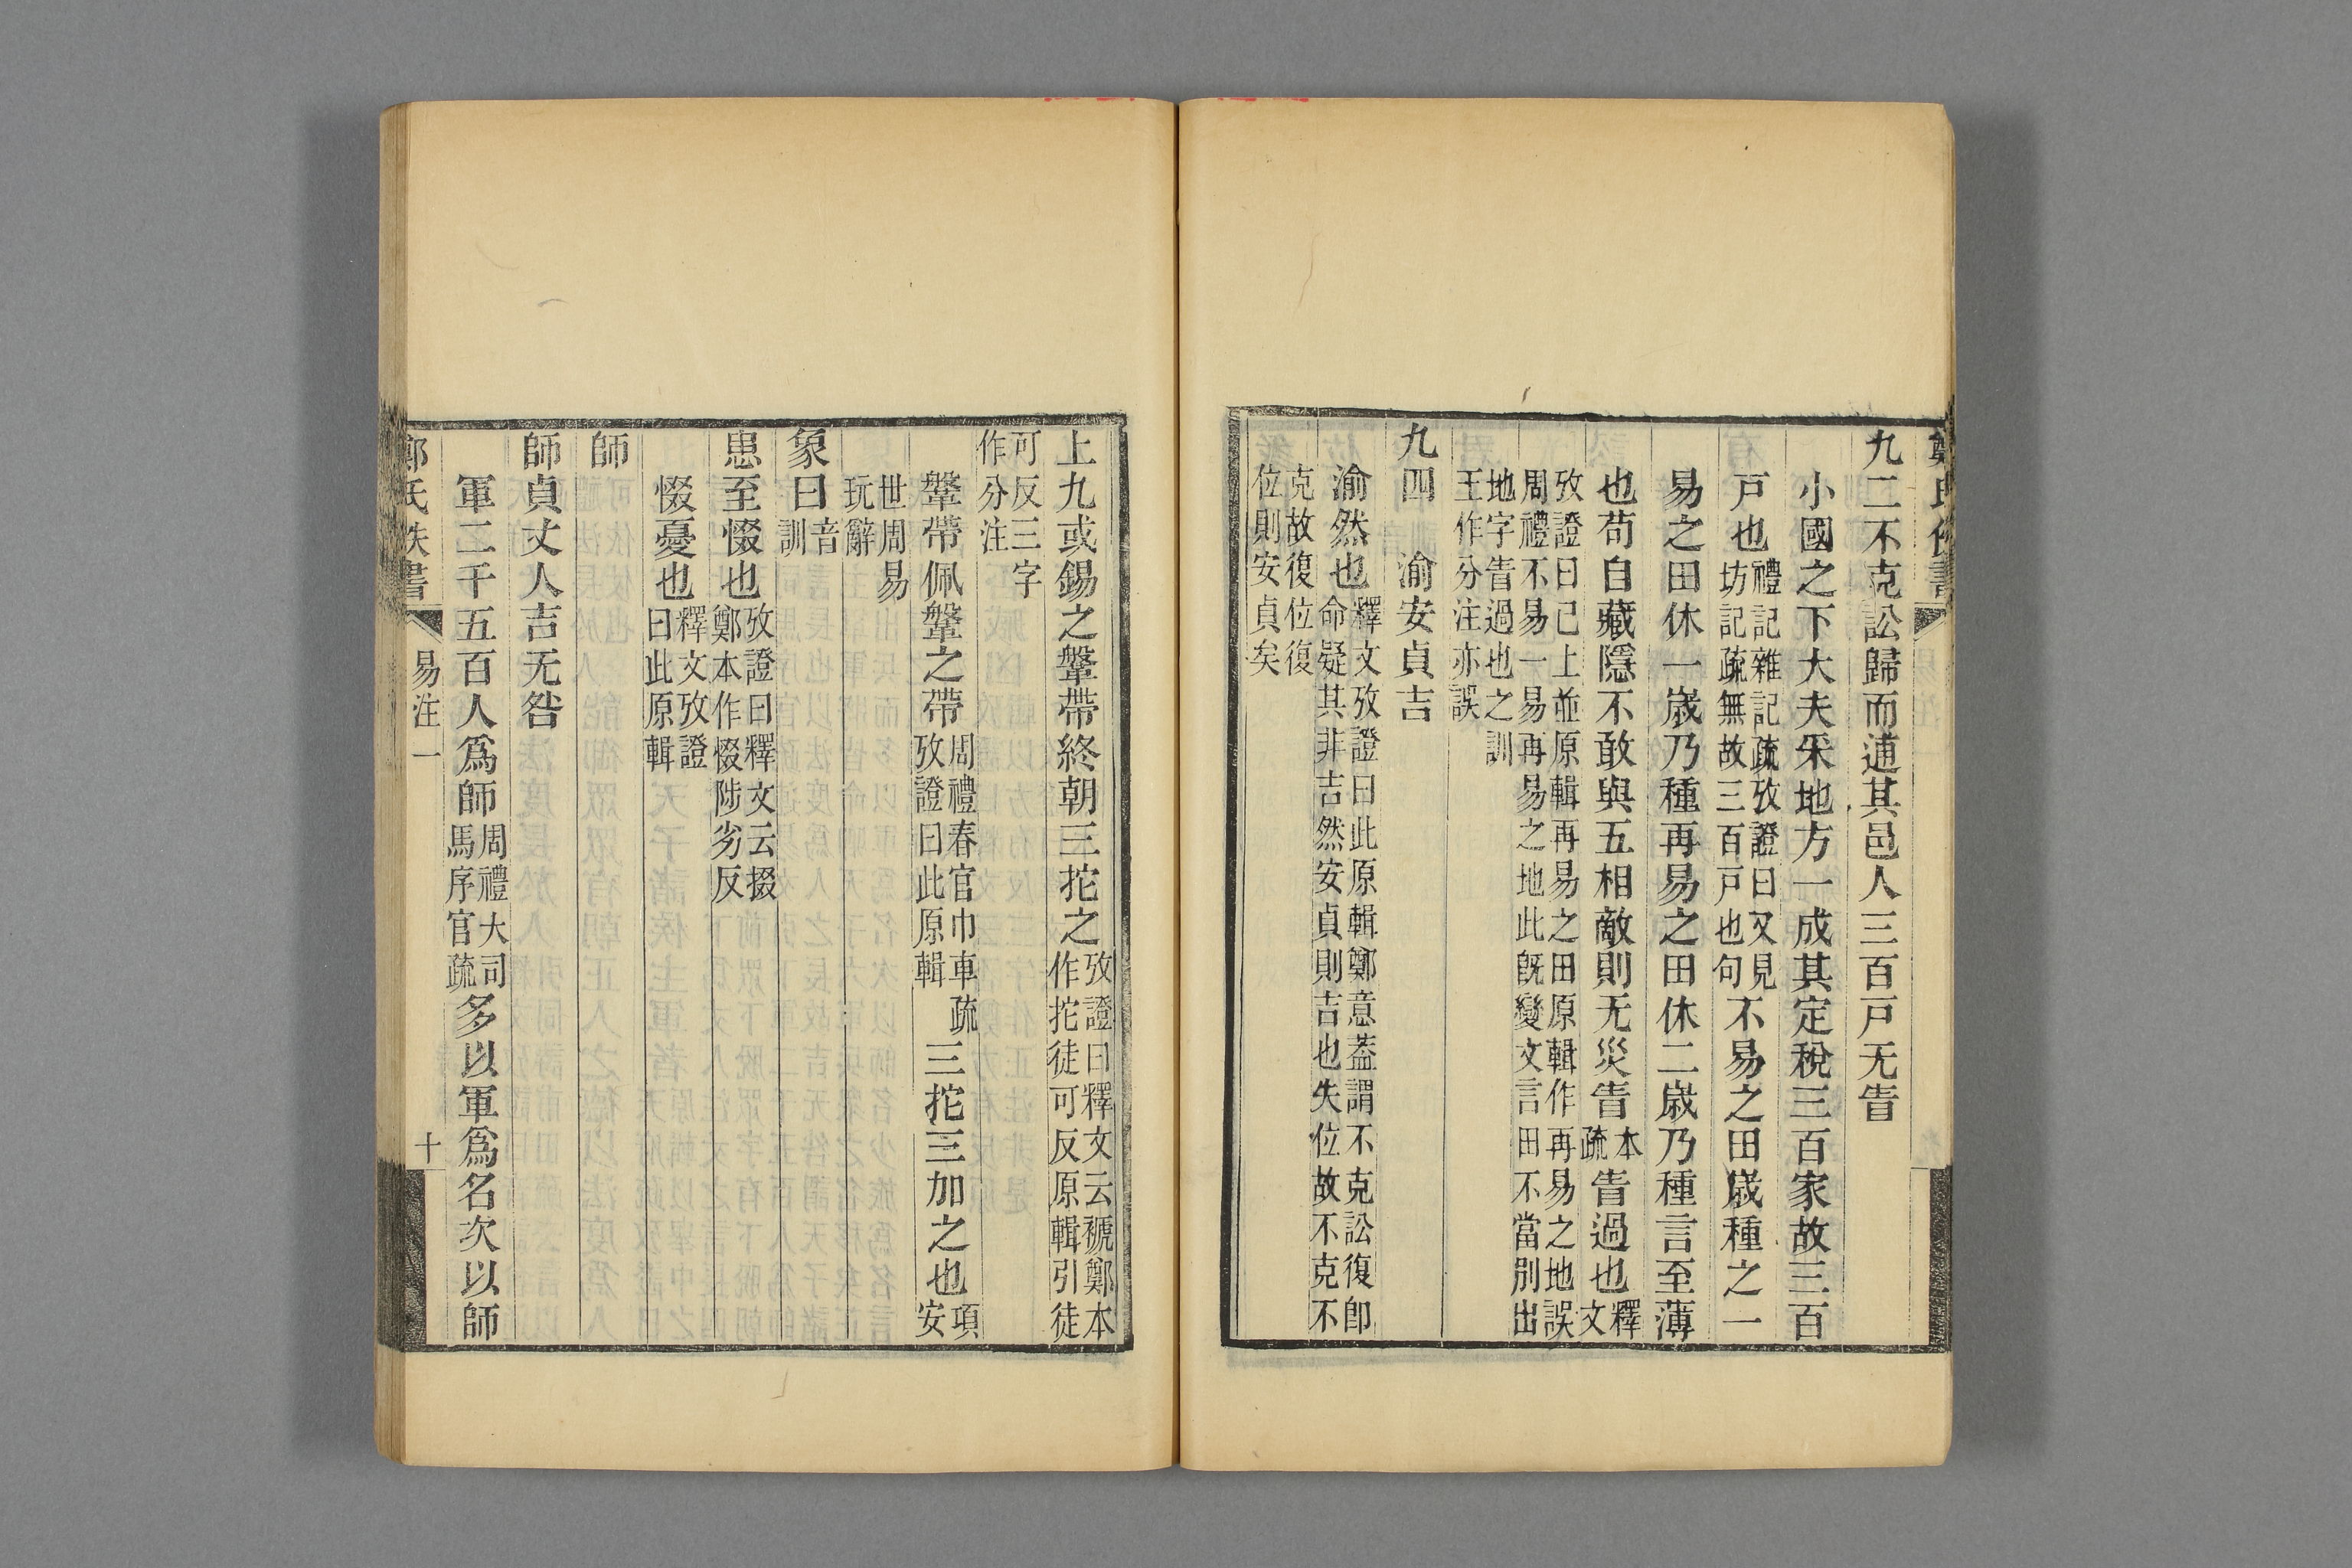 鄭氏佚書
九二不克訟歸而逋其邑人三百戸无眚
小國之下大夫采地方一成其定稅三百家故三百
戸也禮記雜記疏攷證曰又見坊記疏無故三百戸也句不易之田歲種之一
易之田休一歲乃種再易之田休二歲乃種言至薄
也苟自藏隱不敢與五相敵則无災眚本疏眚過也釋文
攷證曰已上並原輯再易之田原輯作再易之地誤
周禮不易一易再易之地此旣變文言田不當別出
地字眚過也之訓
王作分注亦誤
九四　渝安貞吉
渝然也釋文攷證曰此原輯鄭意蓋謂不克訟復卽
命疑其非吉然安貞則吉也失位故不克不
克故復位復
位則安貞矣
上九或錫之鞶帶終朝三拕之攷證曰釋文云褫鄭本
作拕徒可反原輯引徒
可反三字
作分注
鞶帶佩鞶之帶周禮春官巾車疏攷證曰此原輯三拕三加之也項安
世周易
玩辭
象曰音訓
患至惙也攷證曰釋文云掇
鄭本作惙陟劣反
惙憂也釋文攷證
曰此原輯
師
師貞丈人吉无咎
軍二千五百人爲師周禮大司馬序官疏多以軍爲名次以師
鄭氏佚書
易注一
十